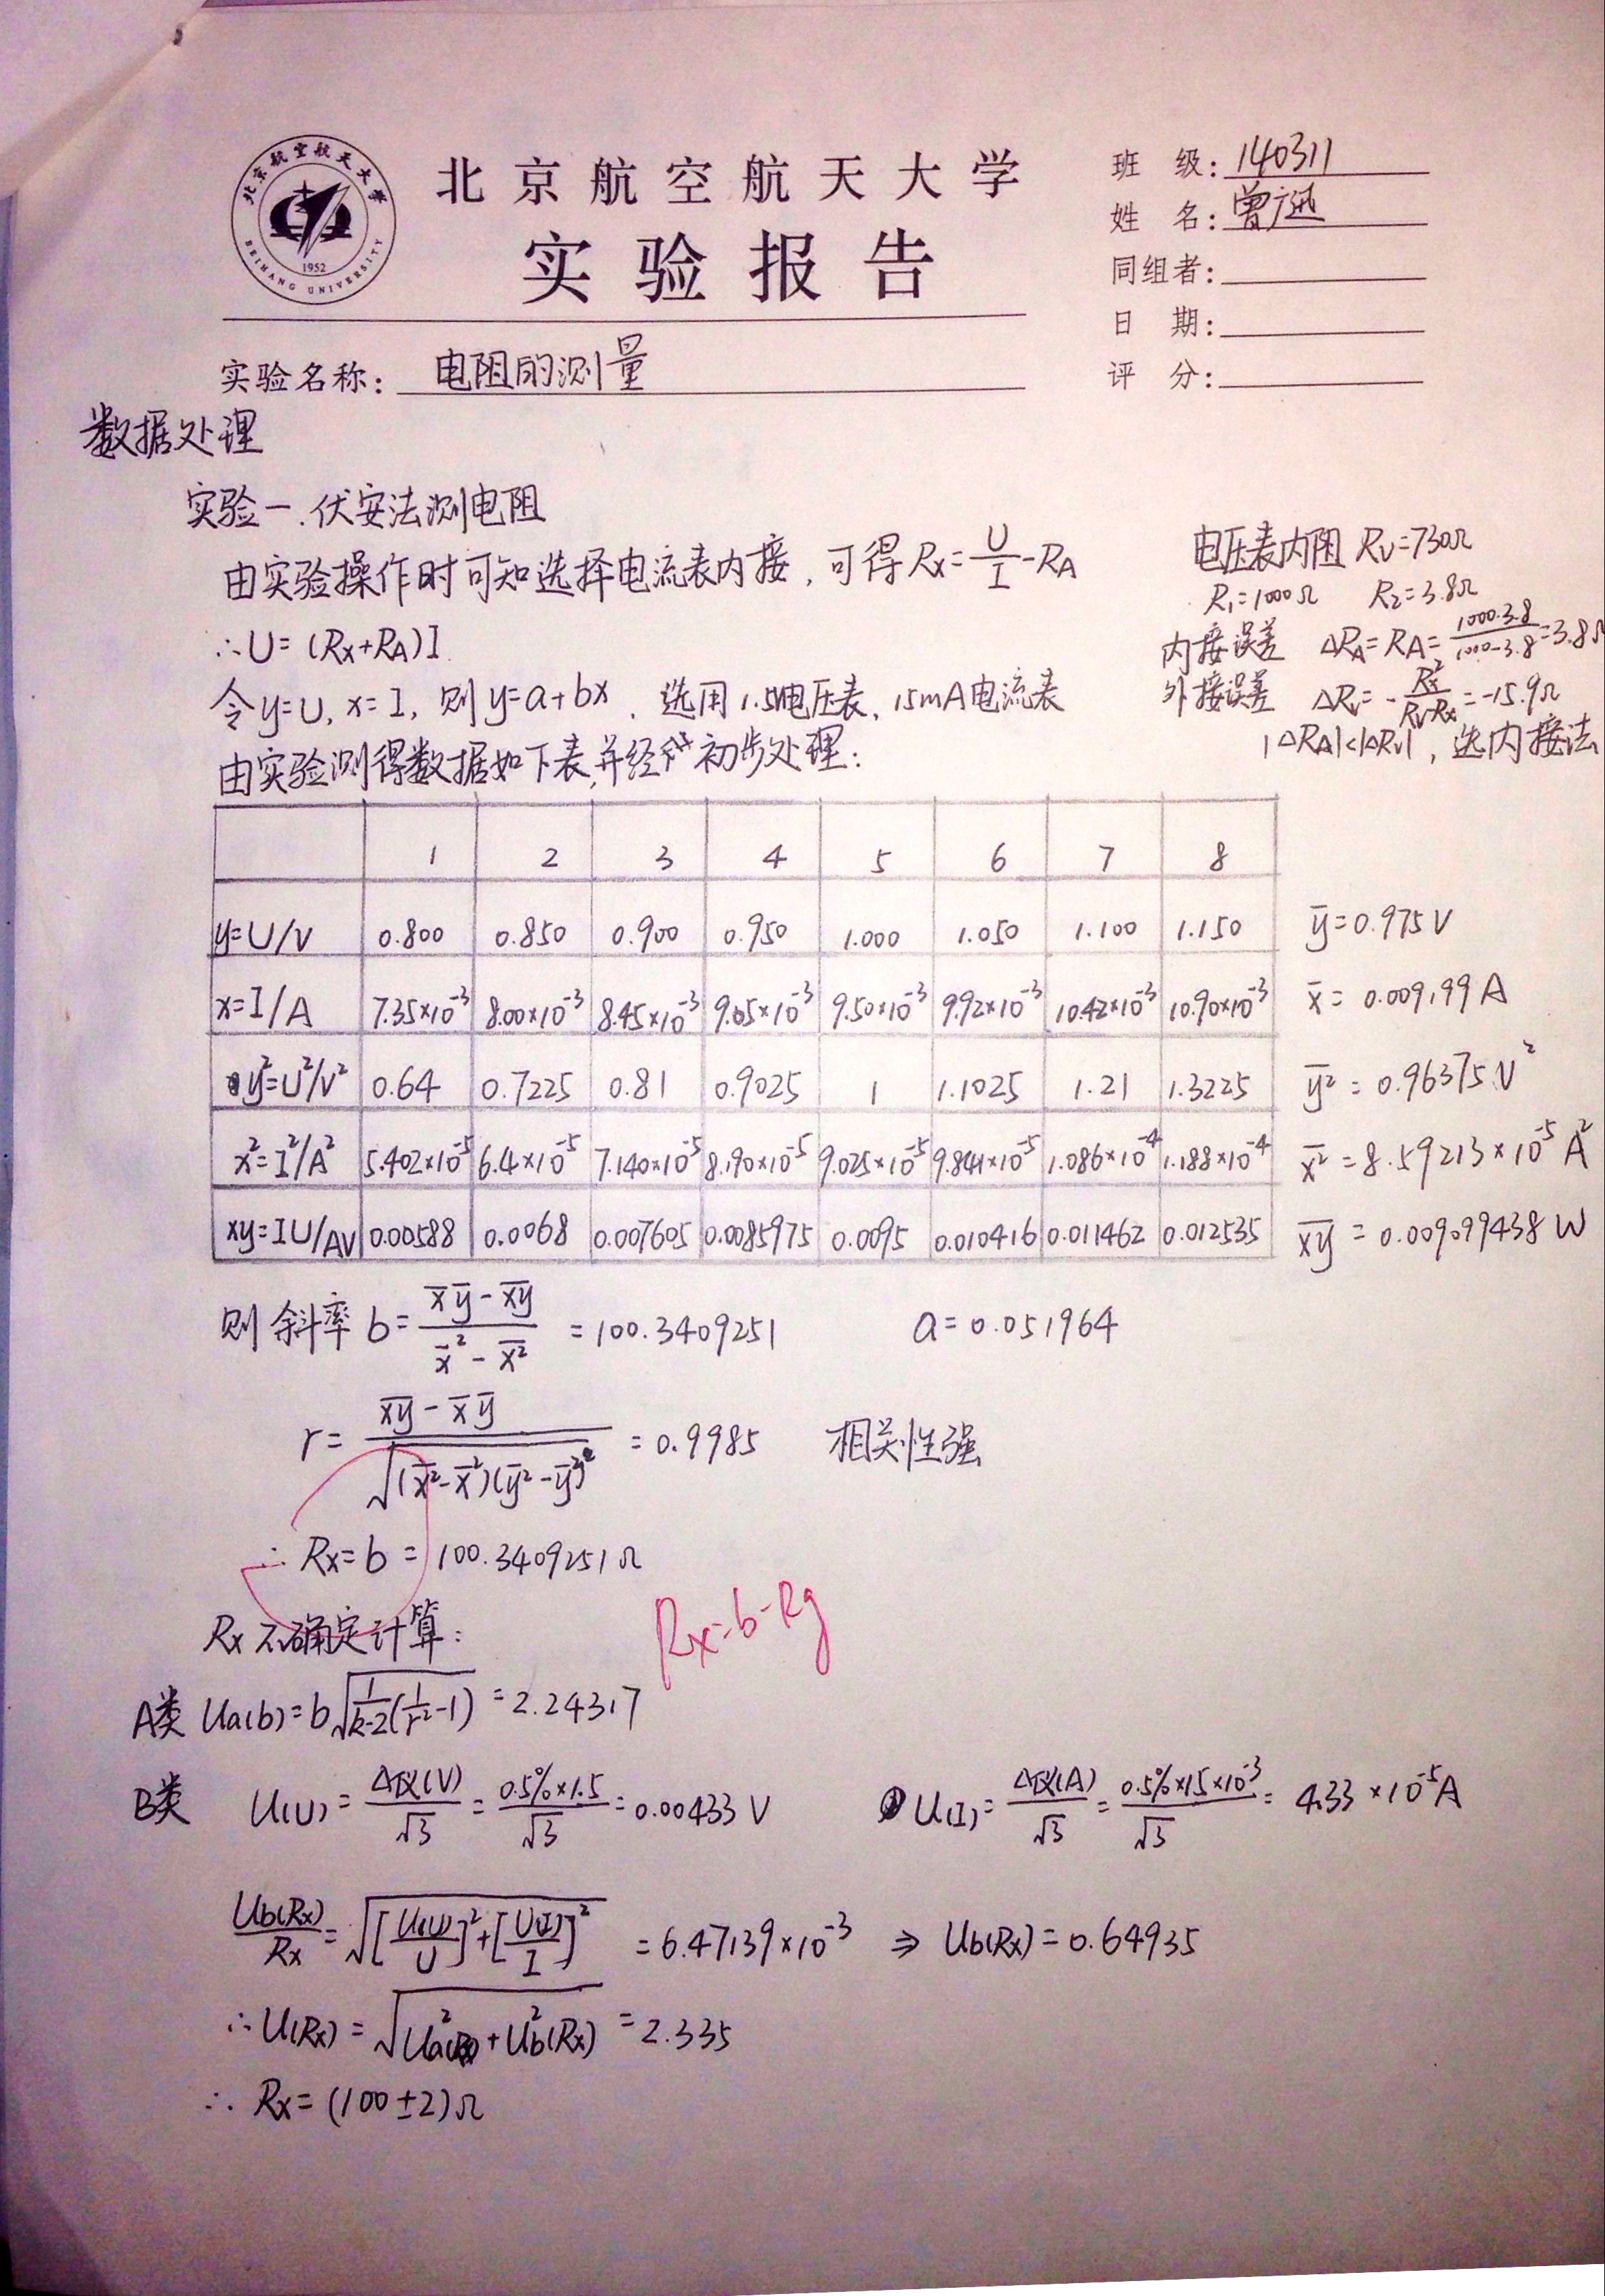 北京航空航天大学
BEIHANG UNIVERSITY
1952
北京航空航天大学
实验报告
班 级: 140311
姓 名: 曾
同组者:
日 期:
评 分:
实验名称: 电阻的测量
数据处理
实验一.伏安法测电阻
由实验操作时可知选择电流表内接,可得Rx=U/I-RA
∴U=(Rx+RA)I
令y=U, x=I, 则y=a+bx. 选用1.5V电压表、15mA电流表
由实验测得数据如下表,并经初步处理:
电压表内阻 Rv=730Ω
R₁=1000Ω R₂=3.8Ω
内接误差 ΔRA=RA=1000·3.8/1000-3.8=3.8Ω
外接误差 ΔRv=-Rx²/Rv-Rx=-15.9Ω
|ΔRA|<|ΔRv|, 选内接法
1 2 3 4 5 6 7 8
y=U/V 0.800 0.850 0.900 0.950 1.000 1.050 1.100 1.150 ȳ=0.975V
x=I/A 7.35×10⁻³ 8.00×10⁻³ 8.45×10⁻³ 9.05×10⁻³ 9.50×10⁻³ 9.92×10⁻³ 10.42×10⁻³ 10.90×10⁻³ x̄=0.009199A
y²=U²/V² 0.64 0.7225 0.81 0.9025 1 1.1025 1.21 1.3225 y²‾=0.96375V²
x²=I²/A² 5.402×10⁻⁵ 6.4×10⁻⁵ 7.140×10⁻⁵ 8.190×10⁻⁵ 9.025×10⁻⁵ 9.841×10⁻⁵ 1.086×10⁻⁴ 1.188×10⁻⁴ x²‾=8.59213×10⁻⁵A²
xy=IU/AV 0.00588 0.0068 0.007605 0.0085975 0.0095 0.010416 0.011462 0.012535 xy‾=0.009099438W
则斜率b=(x̄ȳ-xy‾)/(x̄²-x²‾)=100.3409251 a=0.051964
r=(xy‾-x̄ȳ)/√((x²‾-x̄²)(y²‾-ȳ²))=0.9985 相关性强
∴Rx=b=100.3409251Ω
Rx=b-Rg
Rx不确定计算:
A类 Ua(b)=b√(1/(k-2)(1/r²-1))=2.24317
B类 U(U)=Δ仪(V)/√3=0.5%×1.5/√3=0.00433V U(I)=Δ仪(A)/√3=0.5%×15×10⁻³/√3=4.33×10⁻⁵A
Ub(Rx)/Rx=√([U(U)/U]²+[U(I)/I]²)=6.47139×10⁻³ ⇒ Ub(Rx)=0.64935
∴U(Rx)=√(Ua²(Rx)+Ub²(Rx))=2.335
∴Rx=(100±2)Ω